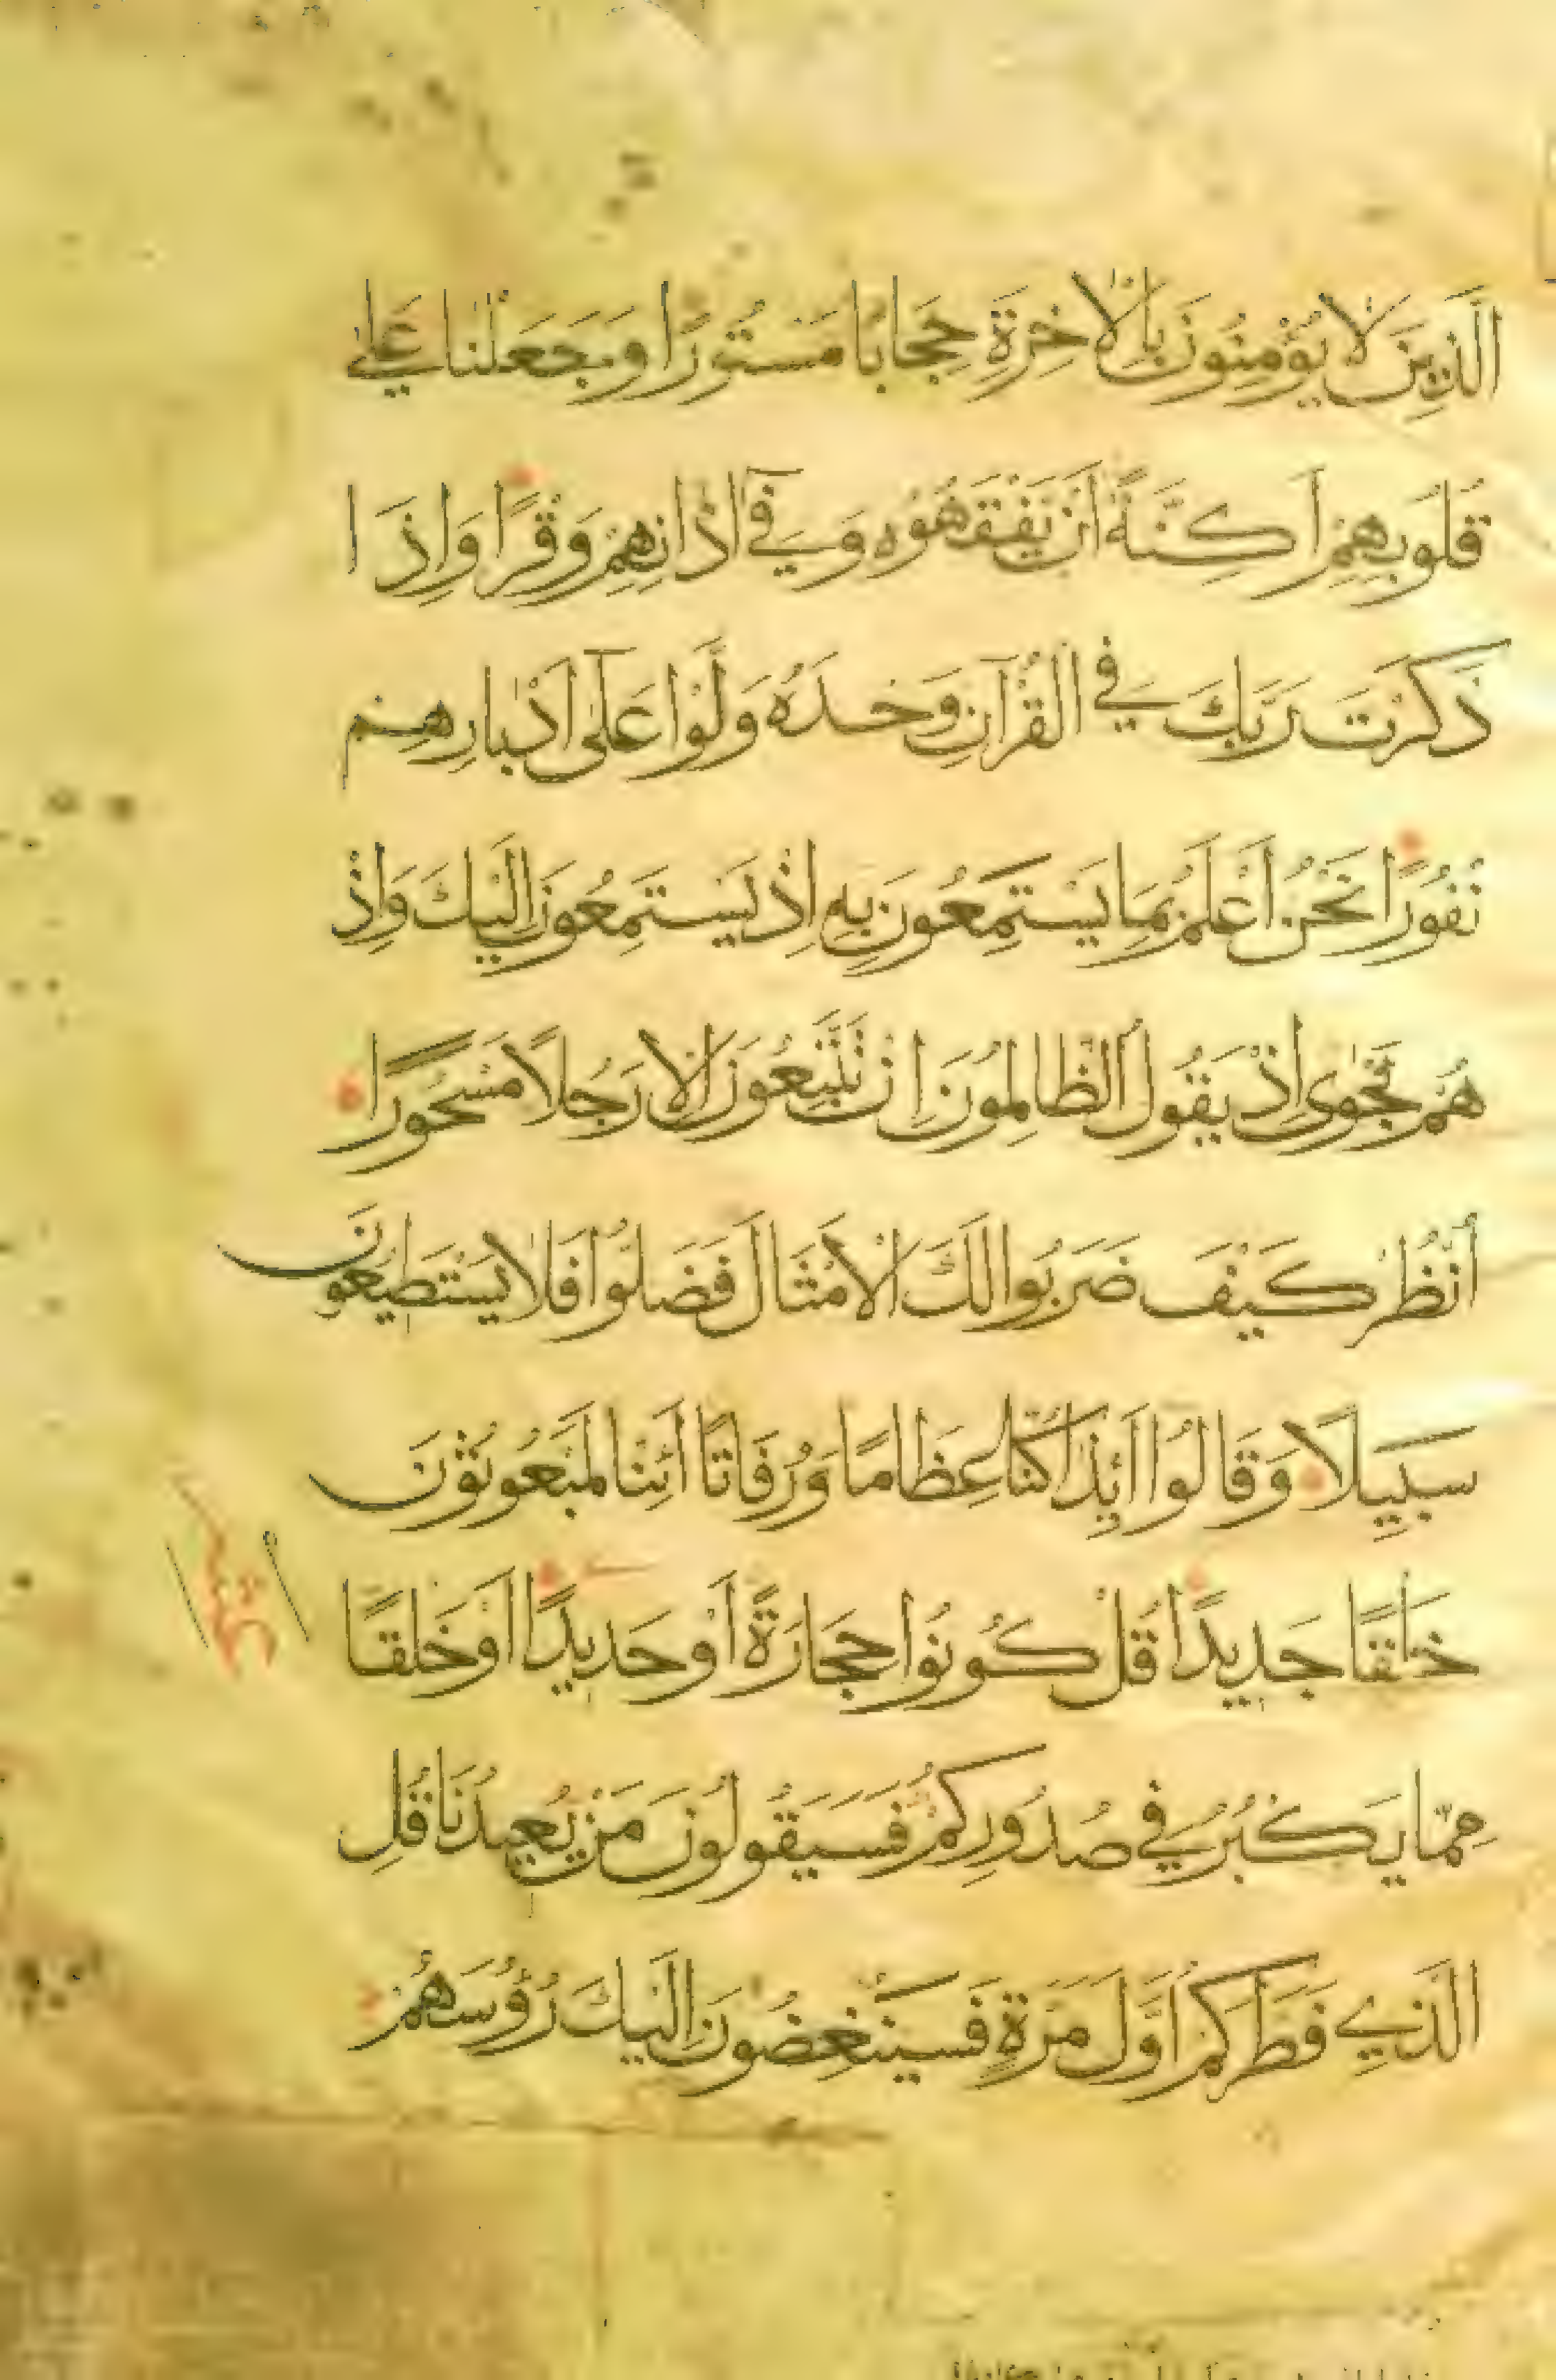 الَّذِينَ لَا يُؤْمِنُونَ بِالْاٰخِرَةِ حِجَابًا مَسْتُورًا وَجَعَلْنَا عَلٰى
قُلُوبِهِمْ اَكِنَّةً اَنْ يَفْقَهُوْهُ وَفِي اٰذَانِهِمْ وَقْرًا وَاِذَا
ذَكَرْتَ رَبَّكَ فِي الْقُرْآنِ وَحْدَهُ وَلَّوْا عَلٰى اَدْبَارِهِمْ
نُفُورًا نَحْنُ اَعْلَمُ بِمَا يَسْتَمِعُونَ بِهِ اِذْ يَسْتَمِعُونَ اِلَيْكَ وَاِذْ
هُمْ نَجْوٰى اِذْ يَقُولُ الظَّالِمُونَ اِنْ تَتَّبِعُونَ اِلَّا رَجُلًا مَسْحُورًا
اُنْظُرْ كَيْفَ ضَرَبُوا لَكَ الْاَمْثَالَ فَضَلُّوْا فَلَا يَسْتَطِيعُونَ
سَبِيلًا وَقَالُوْا اَئِذَا كُنَّا عِظَامًا وَرُفَاتًا اَئِنَّا لَمَبْعُوثُوْنَ
خَلْقًا جَدِيدًا قُلْ كُونُوا حِجَارَةً اَوْ حَدِيدًا اَوْ خَلْقًا
مِمَّا يَكْبُرُ فِي صُدُورِكُمْ فَسَيَقُولُونَ مَنْ يُعِيدُنَا قُلِ
الَّذِي فَطَرَكُمْ اَوَّلَ مَرَّةٍ فَسَيُنْغِضُونَ اِلَيْكَ رُؤُسَهُمْ